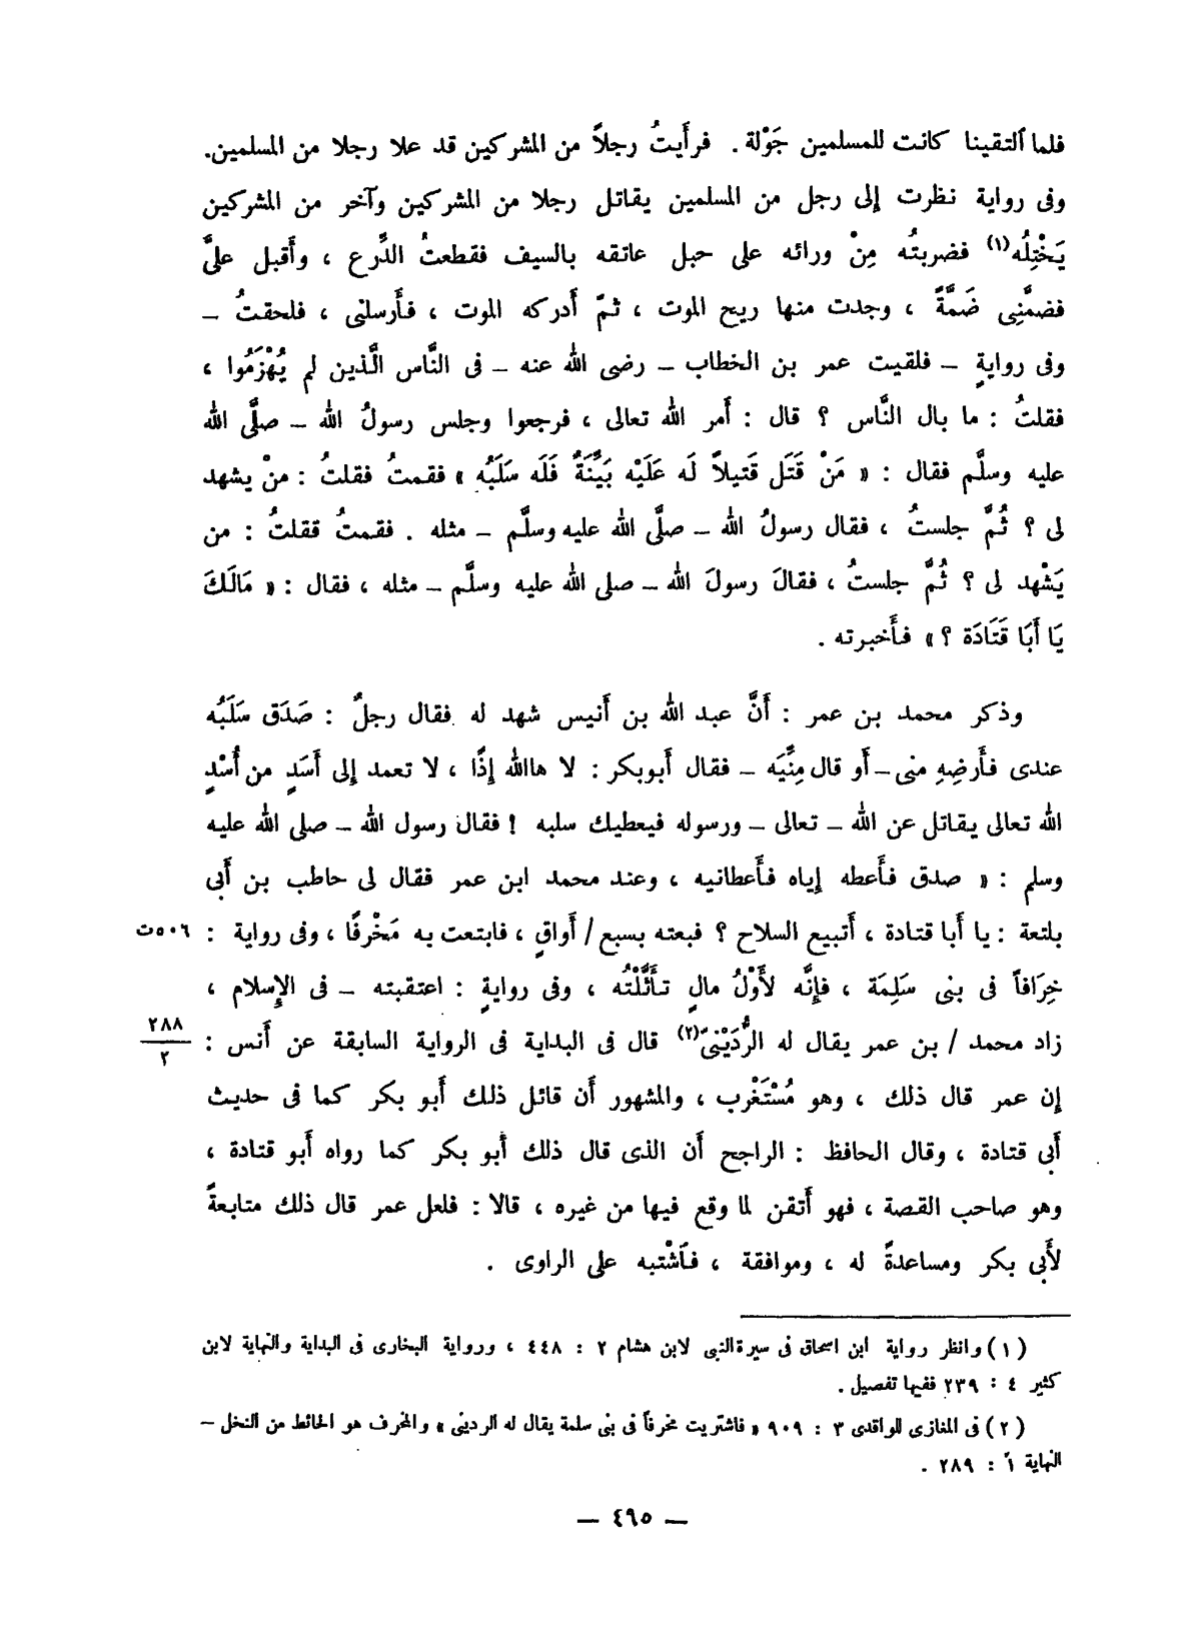 فلما ٱلتقينا كانت للمسلمين جَوْلة . فرأَيتُ رجلاً من المشركين قد علا رجلا من المسلمين.
وفى رواية نظرت إلى رجل من المسلمين يقاتل رجلا من المشركين وآخر من المشركين
يَخْتِلُه(١) فضربتُه مِنْ ورائه على حبل عاتقه بالسيف فقطعتُ الدِّرع ، وأَقبل علىَّ
فضمَّنِى ضَمَّةً ، وجدت منها ريح الموت ، ثمّ أَدركه الموت ، فأَرسلنى ، فلحقتُ –
وفى روايةٍ – فلقيت عمر بن الخطاب – رضى الله عنه – فى النَّاس الَّذين لم يُهْزَمُوا ،
فقلتُ : ما بال النَّاس ؟ قال : أَمر الله تعالى ، فرجعوا وجلس رسولُ الله – صلَّى الله
عليه وسلَّم فقال : « مَنْ قَتَل قَتيلاً لَه عَلَيْه بَيِّنَةٌ فَلَه سَلَبُه » فقمتُ فقلتُ : منْ يشهد
لى ؟ ثُمَّ جلستُ ، فقال رسولُ الله – صلَّى الله عليه وسلَّم – مثله . فقمتُ فقلتُ : من
يَشْهد لى ؟ ثُمَّ جلستُ ، فقالَ رسولَ الله – صلى الله عليه وسلَّم – مثله ، فقال : « مَالَكَ
يَا أَبَا قَتَادَة ؟ » فأَخبرته .
وذكر محمد بن عمر : أَنَّ عبد الله بن أَنيس شهد له فقال رجلٌ : صَدَق سَلَبُه
عندى فأَرضِهِ منى – أَو قال مِنِّيَه – فقال أَبوبكر : لا هاالله إِذًا ، لا تعمد إلى أَسَدٍ من أُسْدٍ
الله تعالى يقاتل عن الله – تعالى – ورسوله فيعطيك سلبه ! فقال رسول الله – صلى الله عليه
وسلم : « صدق فأَعطه إياه فأَعطانيه ، وعند محمد ابن عمر فقال لى حاطب بن أَبى
بلتعة : يا أَبا قتادة ، أَتبيع السلاح ؟ فبعته بسبع / أَواقٍ ، فابتعت به مَخْرفًا ، وفى رواية :
٥٠٦ت
خِرَافاً فى بنى سَلِمَة ، فإِنَّه لأَوْلُ مالٍ تأَثَّلْتُه ، وفى روايةٍ : اعتقبته – فى الإِسلام ،
زاد محمد / بن عمر يقال له الرُّدَيْنىّ(٢) قال فى البداية فى الرواية السابقة عن أَنس :
٢٨٨
٢
إن عمر قال ذلك ، وهو مُسْتَغْرب ، والمشهور أَن قائل ذلك أَبو بكر كما فى حديث
أَبى قتادة ، وقال الحافظ : الراجح أَن الذى قال ذلك أَبو بكر كما رواه أَبو قتادة ،
وهو صاحب القصة ، فهو أَتقن لما وقع فيها من غيره ، قالا : فلعل عمر قال ذلك متابعةً
لأَبى بكر ومساعدةً له ، وموافقة ، فٱشْتبه على الراوى .
(١) وانظر رواية ابن اسحاق فى سيرة النبى لابن هشام ٢ : ٤٤٨ ، ورواية البخارى فى البداية والنهاية لابن
كثير ٤ : ٢٣٩ ففيها تفصيل .
(٢) فى المغازى للواقدى ٣ : ٩٠٩ « فاشتريت مخرفاً فى بنى سلمة يقال له الردينى » والمخرف هو الحائط من النخل –
النهاية ١ : ٢٨٩ .
– ٤٩٥ –